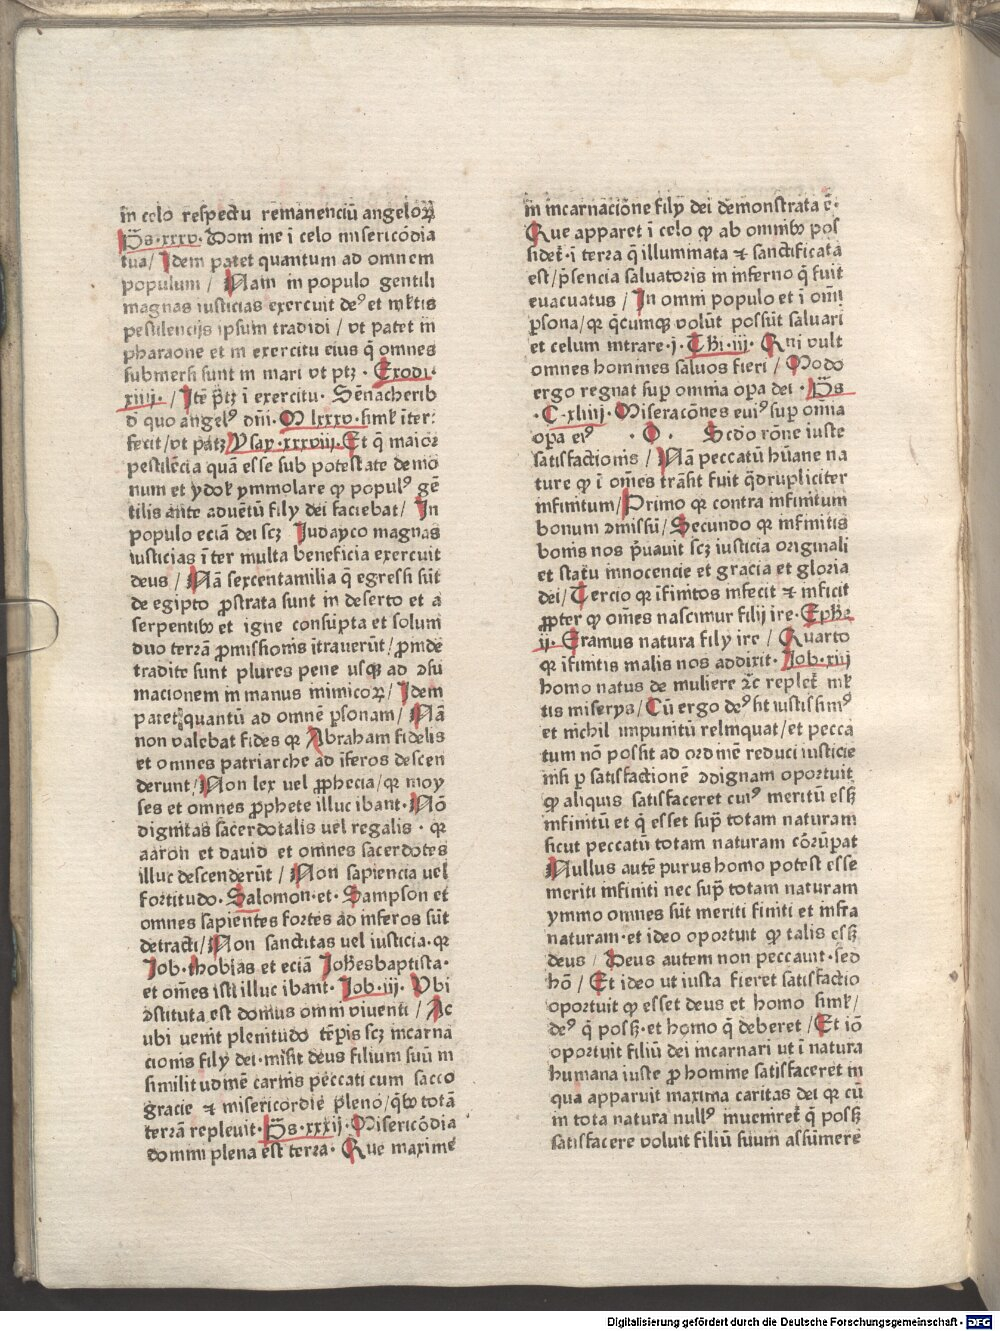 in celo respectu remanenciū angeloꝝ
Ps·xxxv·Dom ine ī celo misericōdia
tua/ Idem patet quantum ad omnem
populum / Nam in populo gentili
magnas iusticias exercuit deꝰ et ml̄tis
pestilencijs ipsum tradidi / vt patet in
pharaone et in exercitu eius q̄ omnes
submersi sunt in mari vt ptꝫ · Exodi·
xiiij· / Itē p̄tꝫ ī exercitu· Sēnacherib
d̄ quo angelꝰ dn̄i· M lxxxv·siml̄ īter⸗
fecit/vt patꝫ/Ysay·xxxviij·Et q̄ maior
pestilēcia quā esse sub potestate demo
num et ydol̄ ymmolare ꝙ populꝰ gē
tilis ante aduētū fily dei faciebat/ In
populo eciā dei scꝫ Iudayco magnas
iusticias īter multa beneficia exercuit
deus / Nā sexcentamilia q̄ egressi sūt
de egipto ꝓstrata sunt in deserto et a
serpentibꝰ et igne consupta et solum
duo terrā ꝓmissionis ītrauerūt/ꝓinde
tradite sunt plures pene usqꝫ ad ↄsu
macionem in manus inimicoꝝ/ Idem
patet quantū ad omnē ꝑsonam/ Nā
non valebat fides qꝛ Abraham fidelis
et omnes patriarche ad īferos descen
derunt/Non lex uel ꝓphecia/qꝛ moy
ses et omnes ꝓphete illuc ibant·Nō
dignitas sacerdotalis uel regalis · qꝛ
aaron et david et omnes sacerdotes
illuc descenderūt / Non sapiencia uel
fortitudo·Salomon·et·Sampson et
omnes sapientes fortes ad inferos sūt
detracti/Non sanctitas uel iusticia·qꝛ
Iob·thobias et eciā Ioh̄esbaptista·
et om̄es isti illuc ibant· Iob·iij· Vbi
ↄstituta est domus omni viuenti / Ac
ubi uenit plenitudo tēpis scꝫ incarna
cionis fily dei·misit deus filium suū in
similitudinē carnis peccati cum sacco
gracie ⁊ misericordie pleno/q̄bꝰ totā
terrā repleuit·Ps·xxxij·Misericōdia
domini plena est terra· Que maxime
in incarnacione fily dei demonstrata ē·
Que apparet ī celo ꝙ ab omnibꝰ pos
sidet̄·ī terra q̄ illuminata ⁊ sanctificata
est/p̄sencia saluatoris in inferno q̄ fuit
euacuatus / In omni populo et ī om̄i
ꝑsona/qꝛ q̄cumqꝫ volūt possūt saluari
et celum intrare·j· Thi·iij· Qui vult
omnes homines saluos fieri / Modo
ergo regnat suꝑ omnia oꝑa dei · Ps
·C·xliiij·Miseracōnes euiꝰ suꝑ omīa
oꝑa eiꝰ · O · Scdo rōne iuste
satisfactionis / Nā peccatū hūane na
ture ꝙ ī om̄es trāsit fuit q̄drupliciter
infinitum/Primo qꝛ contra infinitum
bonum ↄmissū/ Secundo qꝛ infinitis
bonis nos p̄uauit scꝫ iusticia originali
et statu innocencie et gracia et gloria
dei/ Tercio qꝛ īfinitos infecit ⁊ inficit
ꝓpter ꝙ om̄es nascimur filij ire·Ephe
ij· Eramus natura fily ire / Quarto
qꝛ īfinitis malis nos addixit· Iob·xiij
homo natus de muliere ⁊c̄ replet̄ ml̄
tis miserys/ Cū ergo deꝰ sit iustissimꝰ
et nichil impunitū relinquat/et pecca
tum nō possit ad ordinē reduci iusticie
nisi ꝑ satisfactionē ↄdignam oportuit
ꝙ aliquis satisfaceret cuiꝰ meritū esꝫ
infinitū et q̄ esset suꝑ totam naturam
sicut peccatū totam naturam cōrūpat
Nullus autē purus homo potest esse
meriti infiniti nec suꝑ totam naturam
ymmo omnes sūt meriti finiti et infra
naturam·et ideo oportuit ꝙ talis esꝫ
deus / Deus autem non peccauit·sed
hō / Et ideo ut iusta fieret satisfactio
oportuit ꝙ esset deus et homo siml̄/
deꝰ q̄ posꝫ·et homo q̄ deberet /Et iō
oportuit filiū dei incarnari ut ī natura
humana iuste ꝓ homine satisfaceret in
qua apparuit maxima caritas dei qꝛ cū
in tota natura nullꝰ inueniret̄ q̄ posꝫ
satisfacere voluit filiū suum assumere
Digitalisierung gefördert durch die Deutsche Forschungsgemeinschaft - DFG